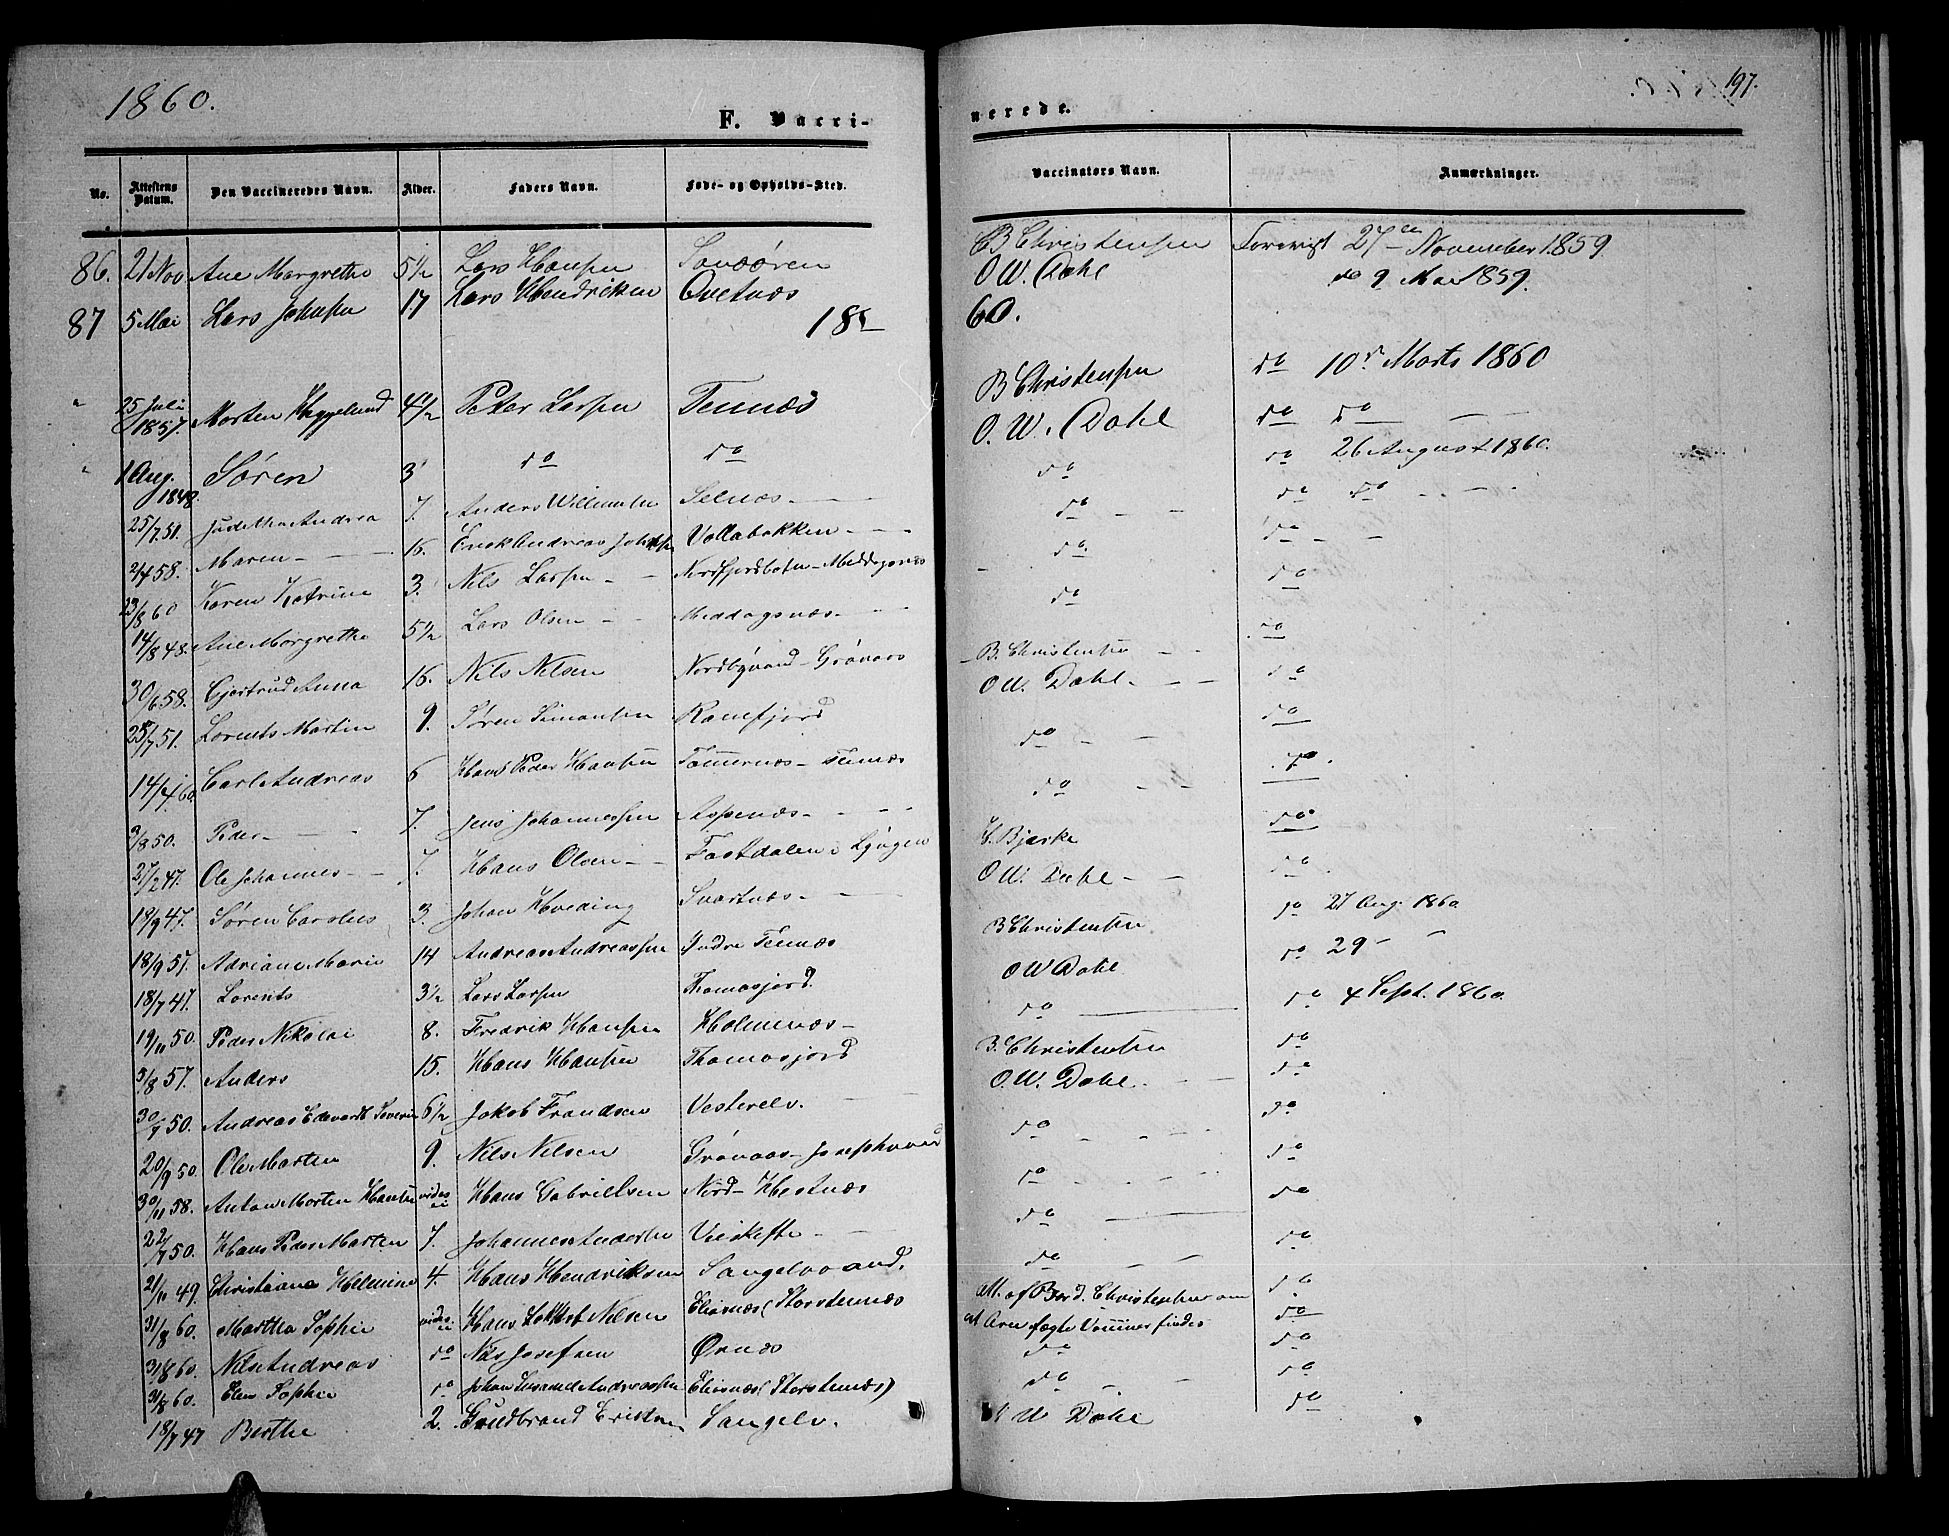 1860.
F. Vacci-
No. Attestens Datum. Den Vaccineredes Navn. Alder. Faders Navn. Føde- og Opholds-Sted.
86. 21 Nov Ane Margrethe 5½ Lars Hansen
87 5 Mai Lars Johnsen 17 Lars Hendriksen
18
25 Juli 1857. Morten Heggelund 4½ Peter Larsen Tennæs
1 Aug. Søren 3 do do
25/7 51. Andrea 7. Anders Willumsen Selnæs
2/4 58. Maren 16. Erik Andreas Vollabakken
23/8 60 Karen Katrine 3. Nils Larsen Nordfjordbotn - Meddagsnæs
14/8 48. Ane Margrethe 5½ Lars Olsen Meddagsnæs
30/6 58. Gjertrud Anna 16. Nils Nilsen Grønaas
25/7 51. Lorents Martin 9. Søren Simonsen Ranefjord
14/4 60 Carl Andreas 6 Hans Peder Hansen Tømmernæs - Tennæs
9/8 50. Peder 7. Jens Johannessen Aspenæs
27/2 47. Ole Johannes 7. Hans Olsen i Lyngen
18/9 47. Søren Carolus 3. Johan Hveding Svartnæs
18/9 57. Adriane Marie 14 Andreas Andreassen Indre Tennæs
18/7 47. Lorents 3½ Lars Larsen Thomasjord
19/11 50. Peder Nikolai 8. Fredrik Hansen Holmenæs
3/8 57. Anders 15. Hans Hansen Thomasjord
30/9 50. Andreas Edevardt Severin 6½ Jakob Frandsen Vesterelv.
20/9 50. Ole Morten 9. Nils Nilsen Grønaas - Josephvand
30/11 58. Anton Morten Hansen vides ei Hans Gabrielsen Nord-Hestnæs
22/7 50. Hans Peder Morten 7. Johannes Andersen
21/11 49. Christiane Helmine 4. Hans Hendriksen Sangelvvand.
31/8 60. Martha Sophie vides ei Hans Nilsen Eliasnæs (Storstennæs
31/8 60. Nils Andreas do Nils Josefsen Ørnæs
31/8 60. Elen Sophie do Johan Andreassen Eliasnæs (Storstennæs)
18/7 47 Berthe 2. Guldbrand Sangelv.
197.
nerede.
Vaccinators Navn. Anmærkninger.
B Christensen Forevist 27de November 1859.
O W. Dahl do 9 Mai 1859.
60.
B Christensen do 10de Marts 1860
O. W. Dahl do do
do do 26 August 1860.
do do do
do do
do do
do
B. Christensen do
O W. Dahl do
do do
do do
C. Bjerke do
O W. Dahl do
B Christensen do 27 Aug. 1860
O W Dahl do 29
do do 4 Sept. 1860.
B. Christensen do
O. W. Dahl do
do do
do do
do do
do do
Att. af Christensen om do
at ægte Vacciner findes do
do do
do do
O W Dahl do